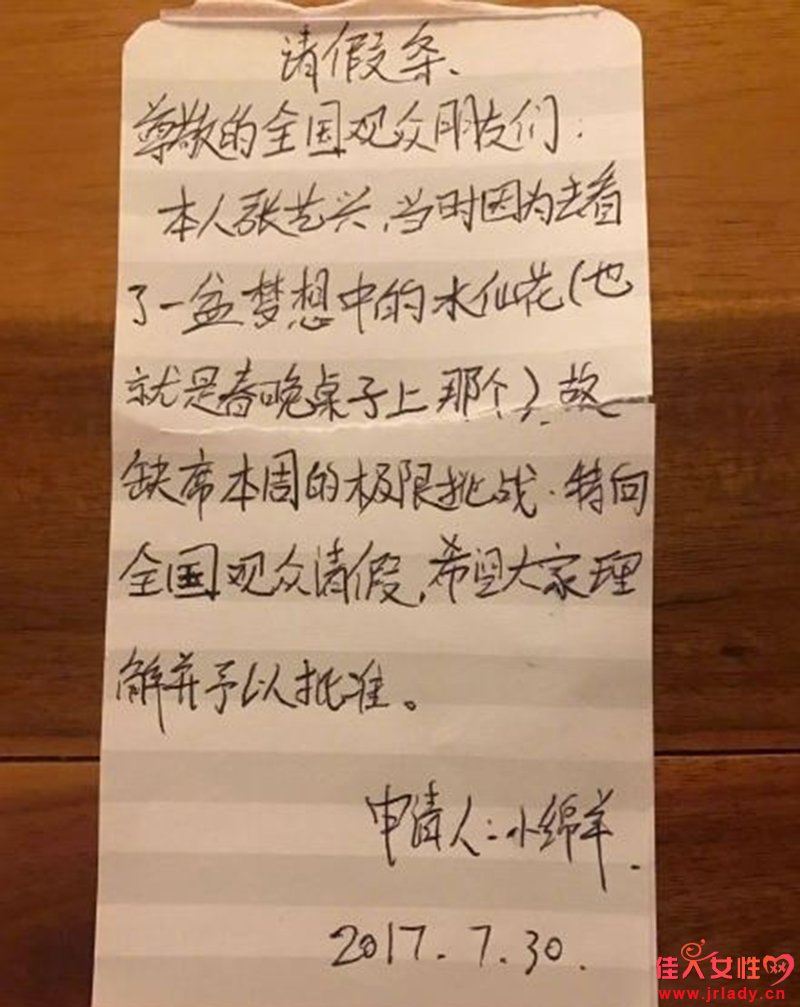 请假条、
尊敬的全国观众朋友们:
本人张艺兴,当时因为去看
了一盆梦想中的水仙花(也
就是春晚桌子上那个),故
缺席本周的极限挑战.特向
全国观众请假,希望大家理
解并予以批准。
申请人:小绵羊.
2017.7.30.
佳人女性网
www.jrlady.cn